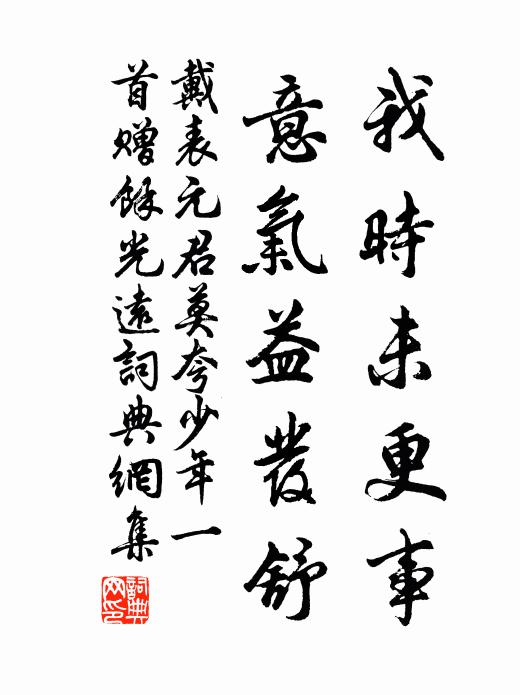 我時未更事
意氣益發舒
戴表元君莫夸少年一
首贈餘光遠詞典網集
詞典
网印